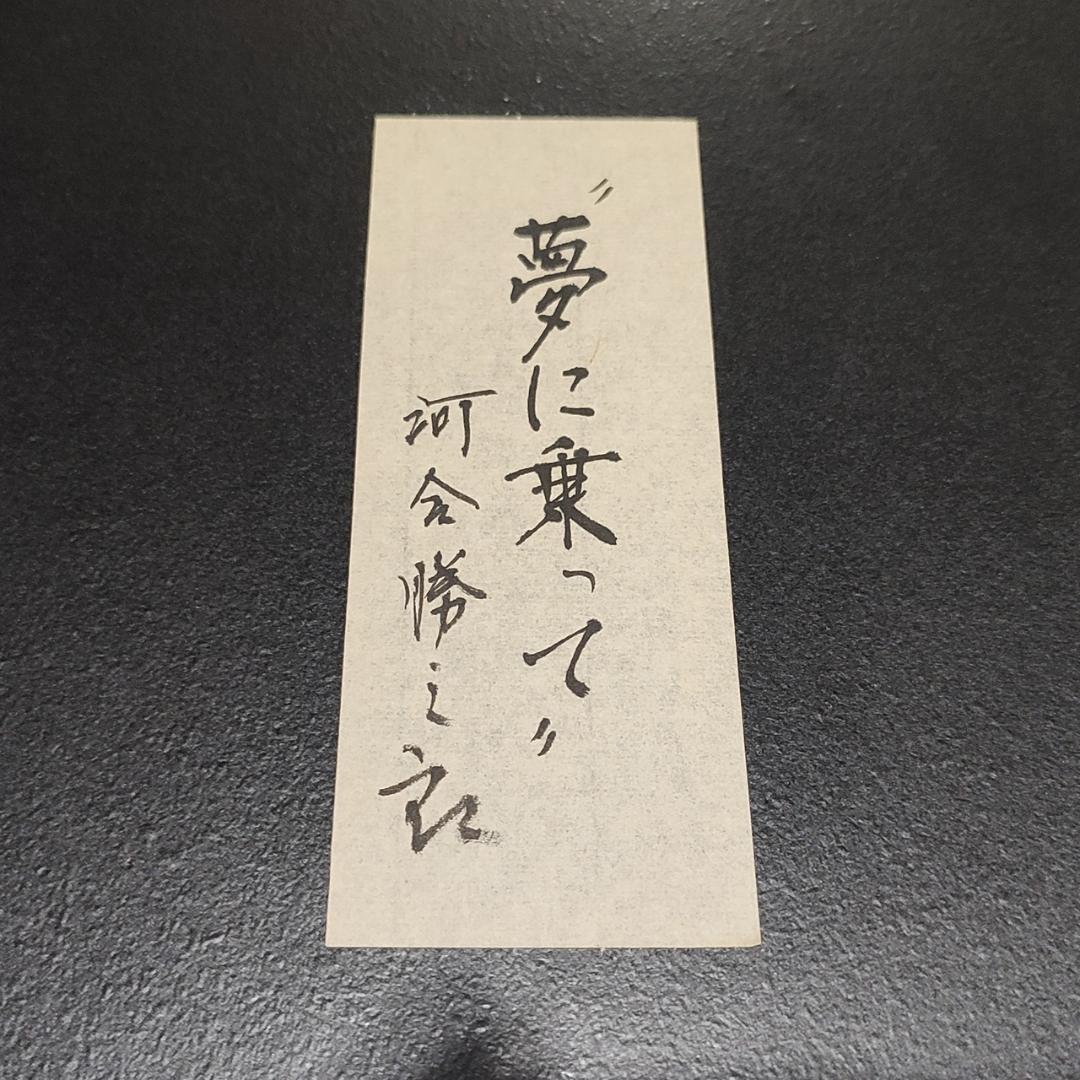 〝夢に乗って〞
河合勝之郎